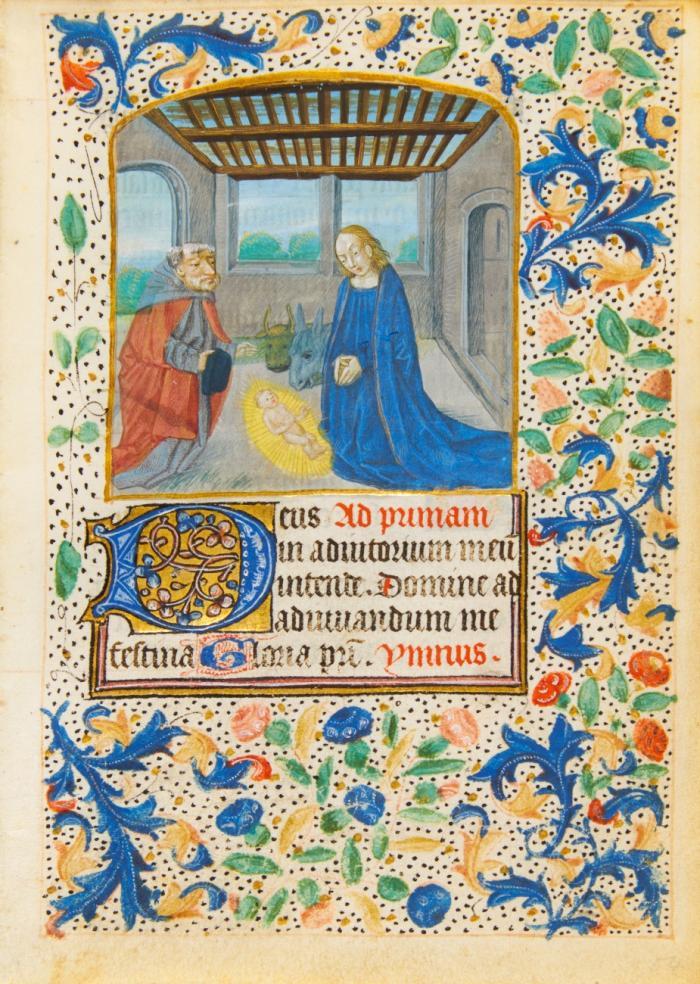 Deus Ad primam
in adiutorium meū
intende. Domine ad
adiuuandum me
festina Gloria pr̄i. ymnus.